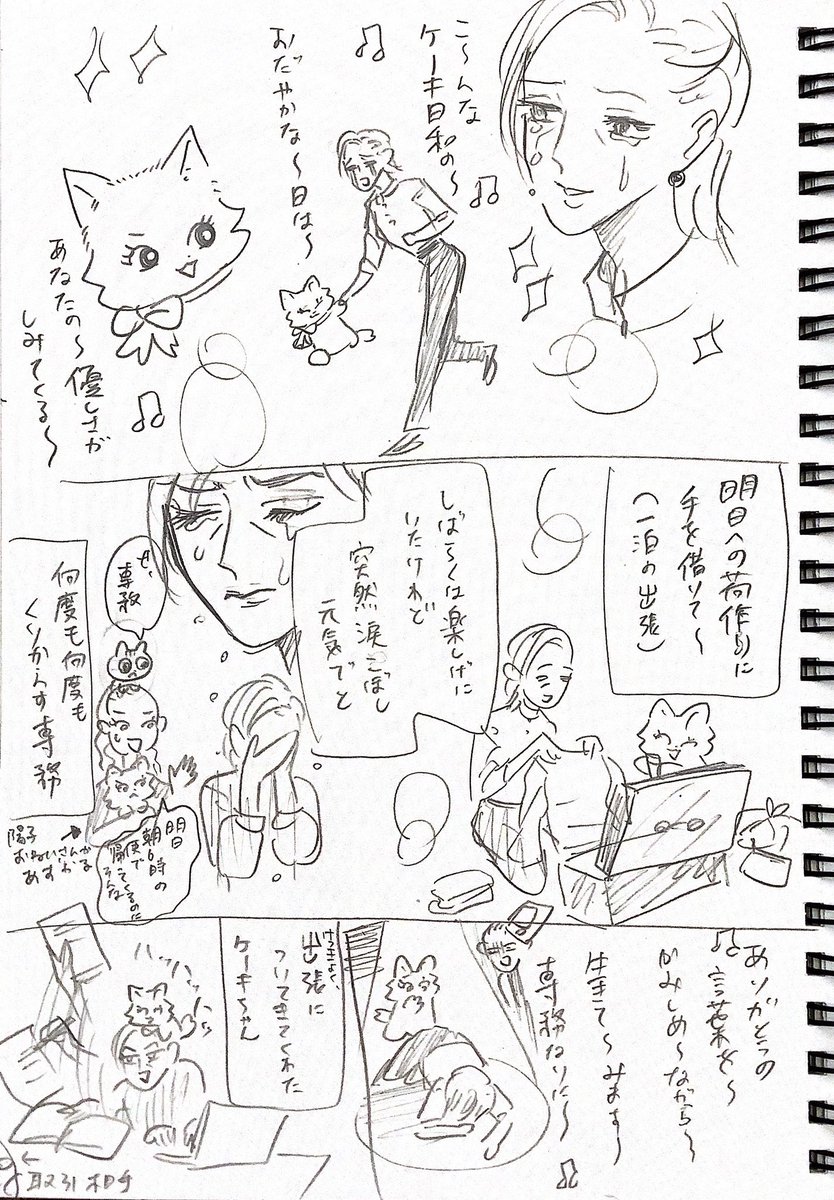 こ〜んな
ケーキ日和の〜
おだやかな〜日は〜
あなたの〜優しさが
しみてくる〜
明日への荷作りに
手を借りて〜
(一泊の出張)
しばらくは楽しげに
いたけれど
突然涙こぼし
元気でと
せ、
専務
何度も何度も
くりかえす専務
明日
朝6時の
便で
帰ってくるのに
そんな
陽子
おねいさん
あずかる
ありがとうの
言葉を〜
かみしめ〜ながら〜
生きて〜みます〜
専務なりに〜
けっきょく、
出張に
ついてきてくれた
ケーキちゃん
ハハハハ
取引相手